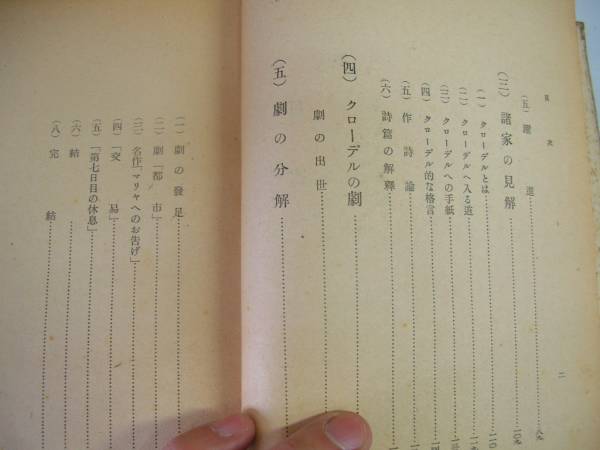 目次
(五) 躍進
(三) 諸家の見解
(一) クローデルとは
(二) クローデルへ入る道
(三) クローデルへの手紙
(四) クローデル的な格言
(五) 作詩論
(六) 詩篇の解釋
(四) クローデルの劇
劇の出世
(五) 劇の分解
二
(一) 劇の發足
(二) 劇「都市」
(三) 名作「マリヤへのお告げ」
(四) 「交易」
(五) 「第七日目の休息」
(六) 結
(八) 完結